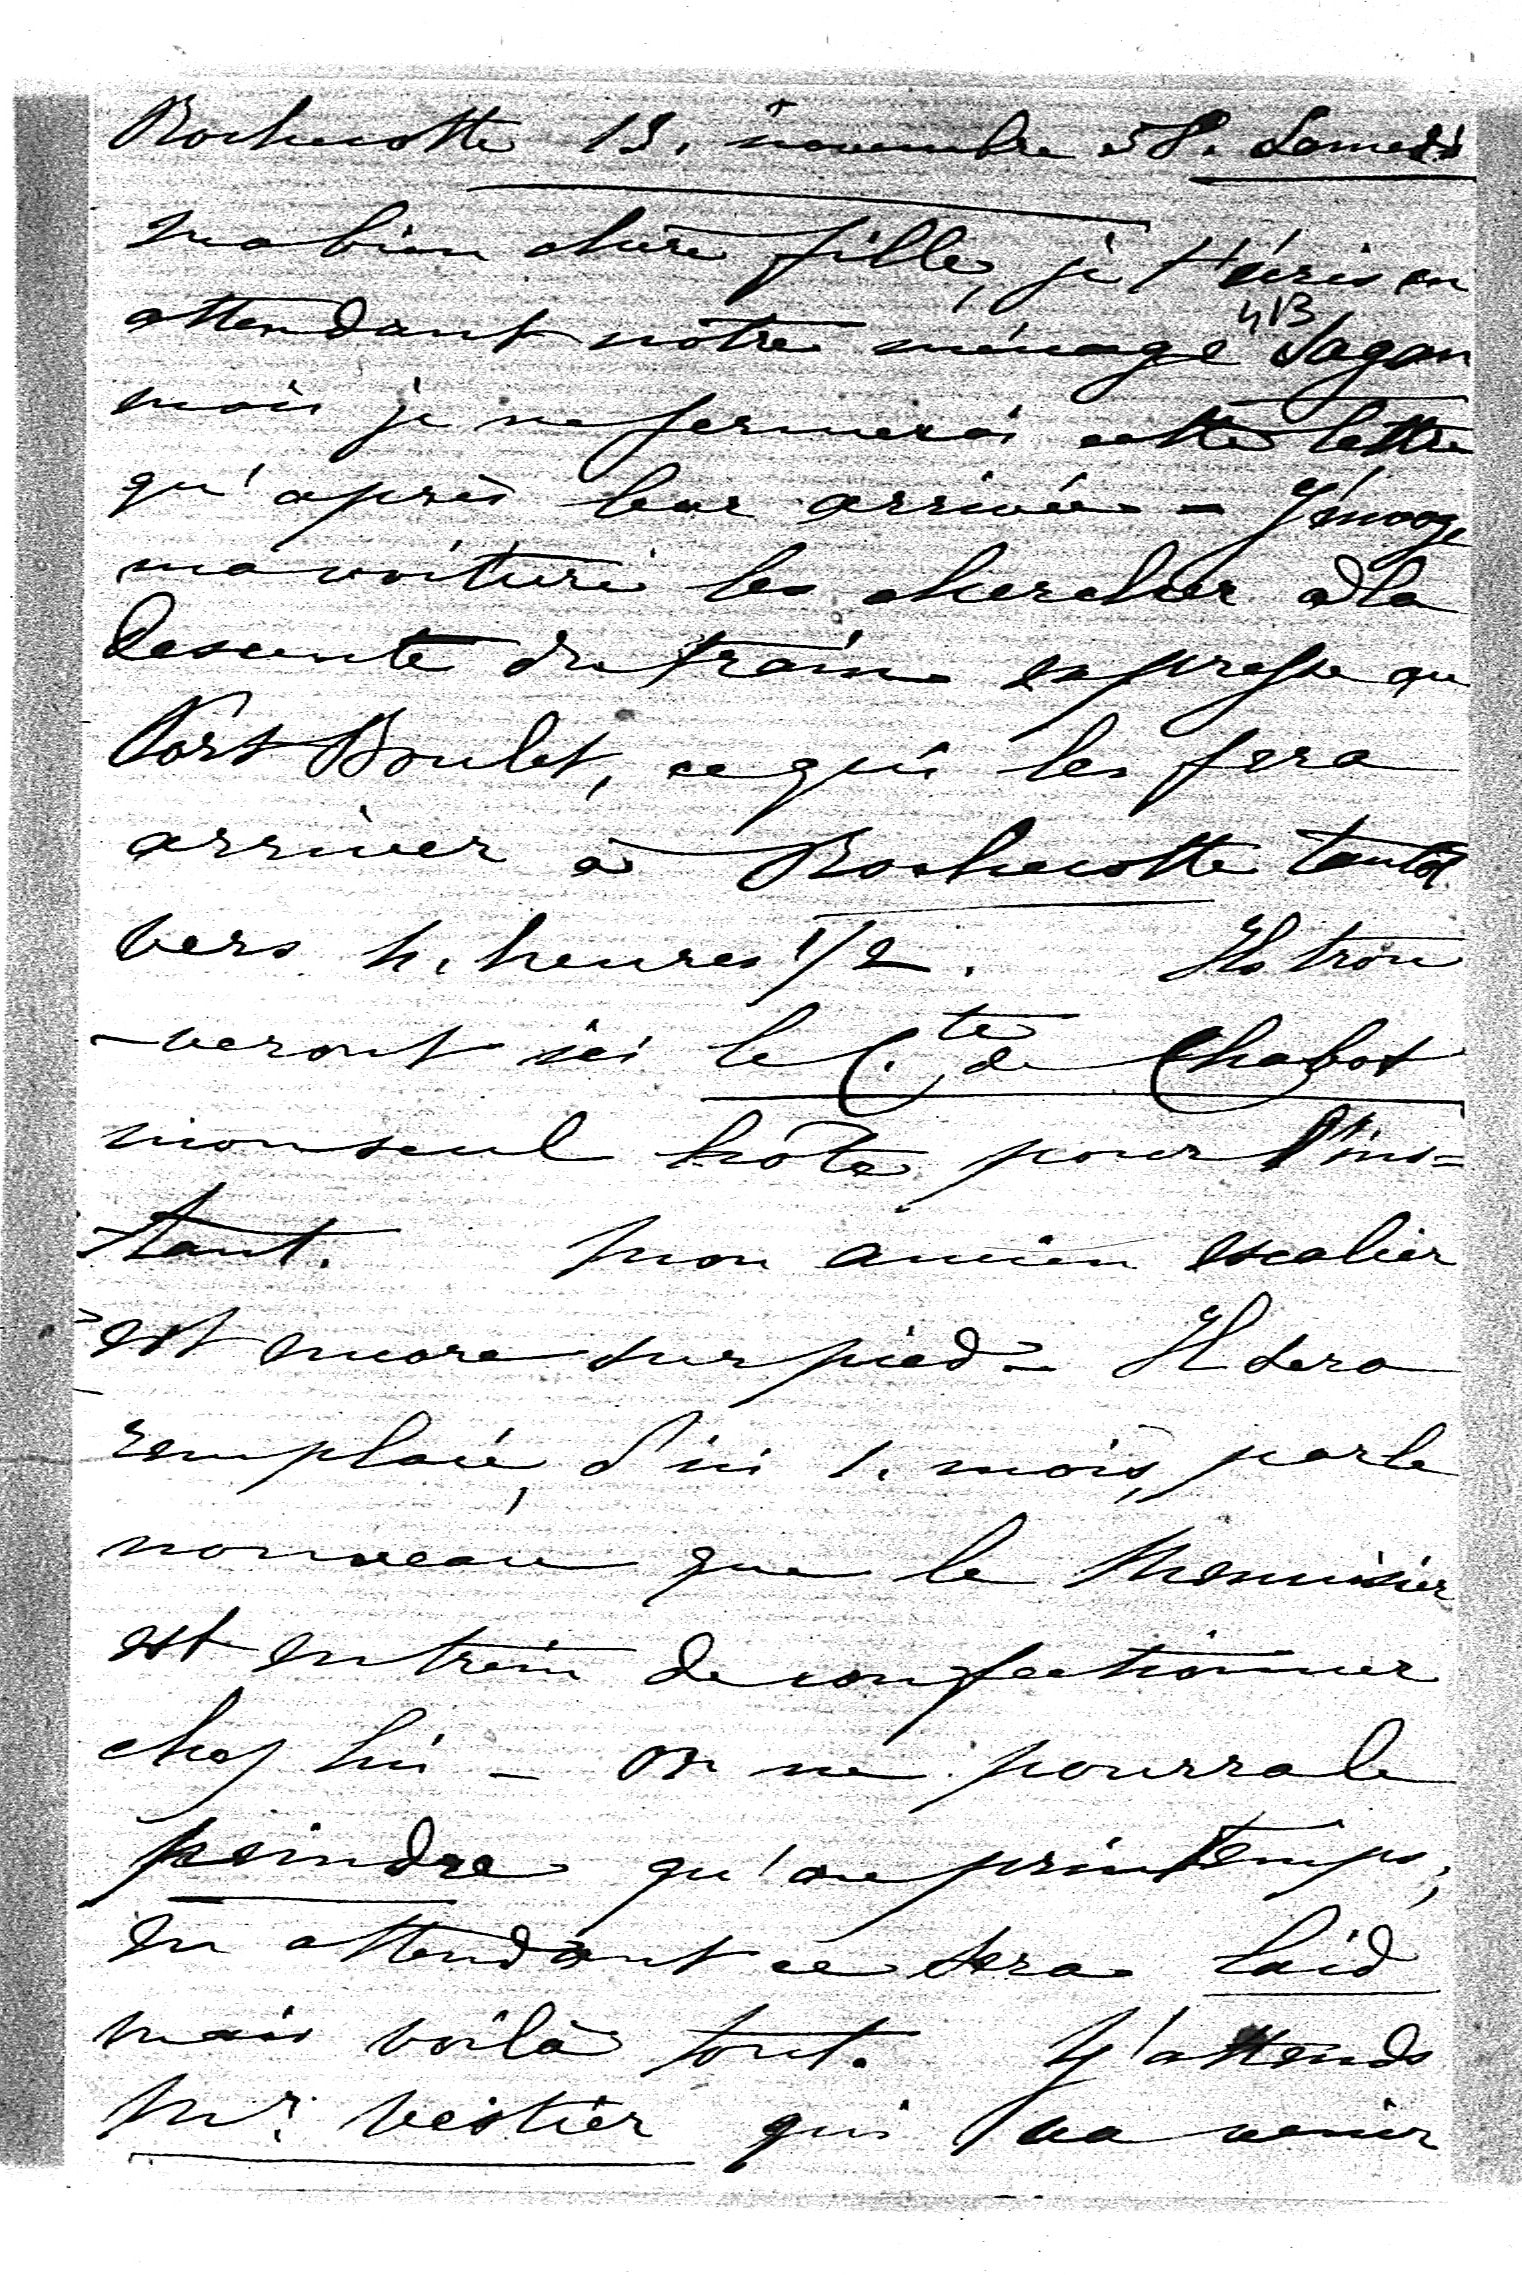 Rochecotte 13. novembre 58. Samedi
ma bien chère fille, je t'écris en
attendant notre ménage Sagan
mais je ne fermerai cette lettre
qu'après leur arrivée – J'envoye
ma voiture les chercher à la
descente du train expresse au
Port Boulet, ce qui les fera
arriver à Rochecotte tantôt
vers 4. heures 1/2. Ils trou
-veront ici le C.te de Chabot
mon seul hôte pour l'ins=
-tant. Mon ancien escalier
est encore sur pied – Il sera
remplacé, d'ici 1. mois, par le
nouveau que le Menuisier
est en train de confectionner
chez lui – on ne pourra le
peindre qu'au printemps;
en attendant ce sera laid
mais voilà tout. J'attends
Mr. Vestier qui va venir